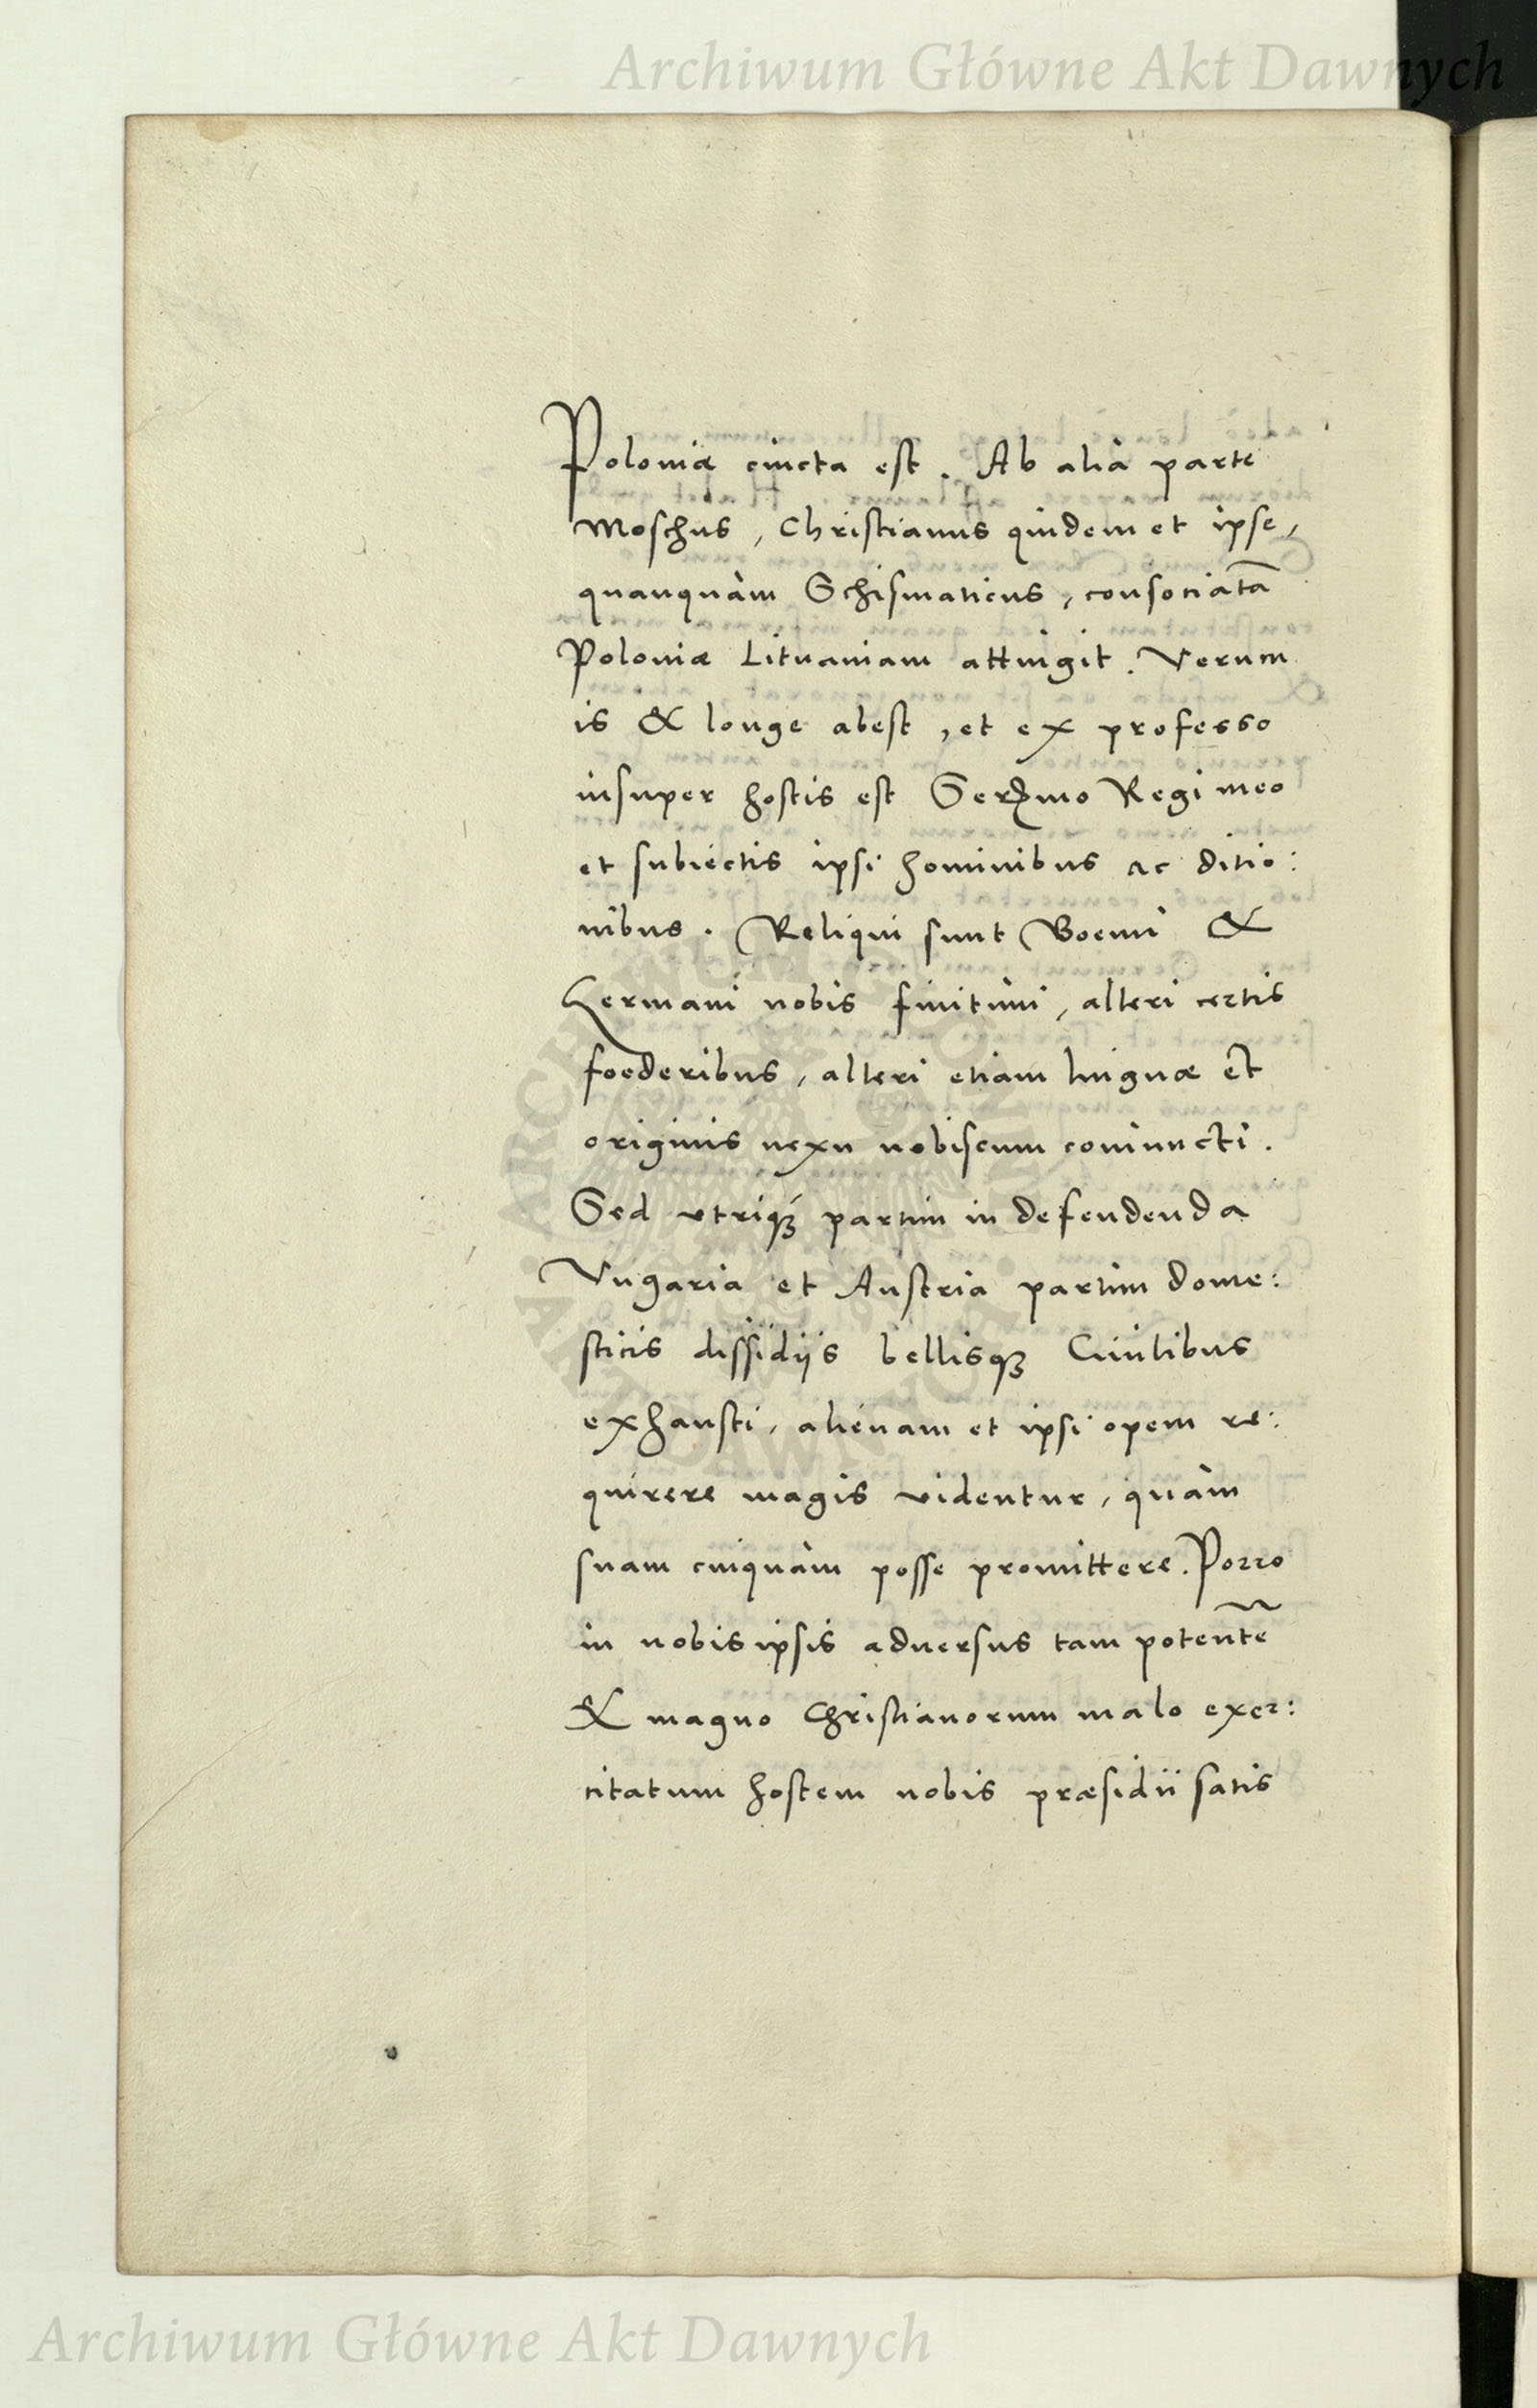 Archiwum Główne Akt Dawnych
Poloniæ cincta est. Ab alia parte
Moschus, Christianus quidem et ipse,
quanquàm Schismaticus, consociatã
Poloniæ Lituaniam attingit. Verum
is & longe abest, et ex professo
insuper hostis est Serꝰmo Regi meo
et subiectis ipsi hominibus ac ditio:
nibus. Reliqui sunt Boemi &
Germani nobis finitimi, alteri certis
foederibus, alteri etiam linguæ et
originis nexu nobiscum coniuncti.
Sed vtriqꝫ partim in defendenda
Vngaria et Austria partim dome:
sticis dissidijs bellisqꝫ Ciuilibus
exhausti, alienam et ipsi opem re:
quirere magis videntur, quàm
suam cuiquàm posse promittere. Porro
in nobis ipsis aduersus tam potentẽ
& magno Christianorum malo exer:
citatum hostem nobis præsidii satis
Archiwum Główne Akt Dawnych